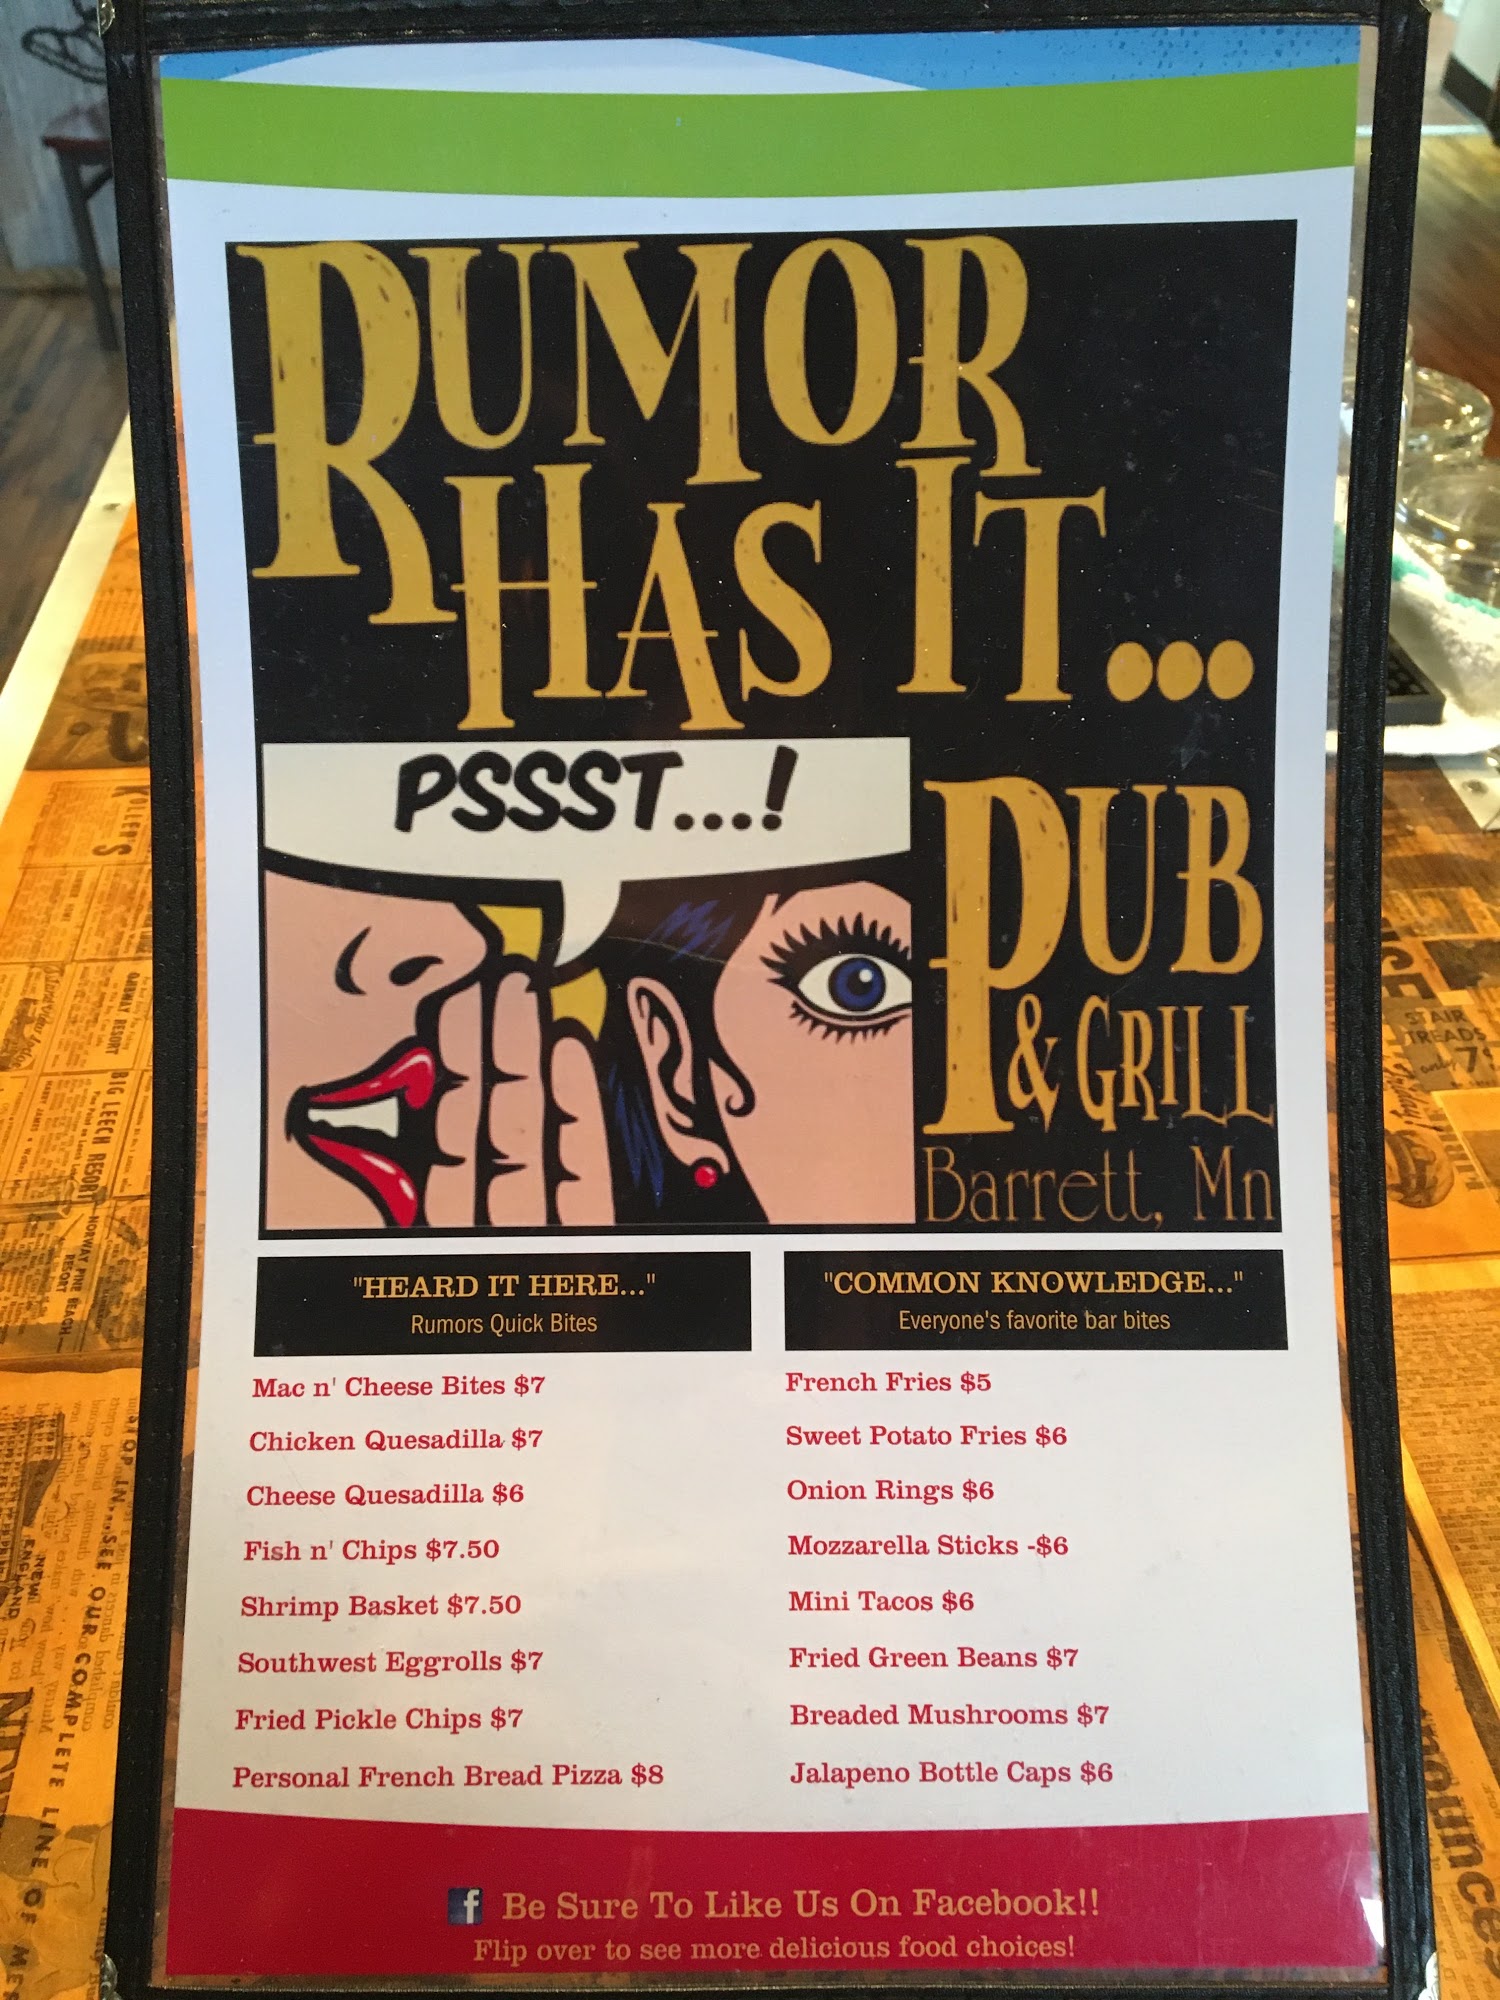 RUMOR
HAS IT...
PSSST...!
PUB
& GRILL
Barrett, Mn
"HEARD IT HERE..."
Rumors Quick Bites
Mac n' Cheese Bites $7
Chicken Quesadilla $7
Cheese Quesadilla $6
Fish n' Chips $7.50
Shrimp Basket $7.50
Southwest Eggrolls $7
Fried Pickle Chips $7
Personal French Bread Pizza $8
"COMMON KNOWLEDGE..."
Everyone's favorite bar bites
French Fries $5
Sweet Potato Fries $6
Onion Rings $6
Mozzarella Sticks -$6
Mini Tacos $6
Fried Green Beans $7
Breaded Mushrooms $7
Jalapeno Bottle Caps $6
f Be Sure To Like Us On Facebook!!
Flip over to see more delicious food choices!
KOLLER'S
BIG LEECH RESORT
NORWAY PINE BEACH
RESORT
STOP IN...SEE OUR COMPLETE LINE OF
NEW
ENGLAND
STAIR
TREADS